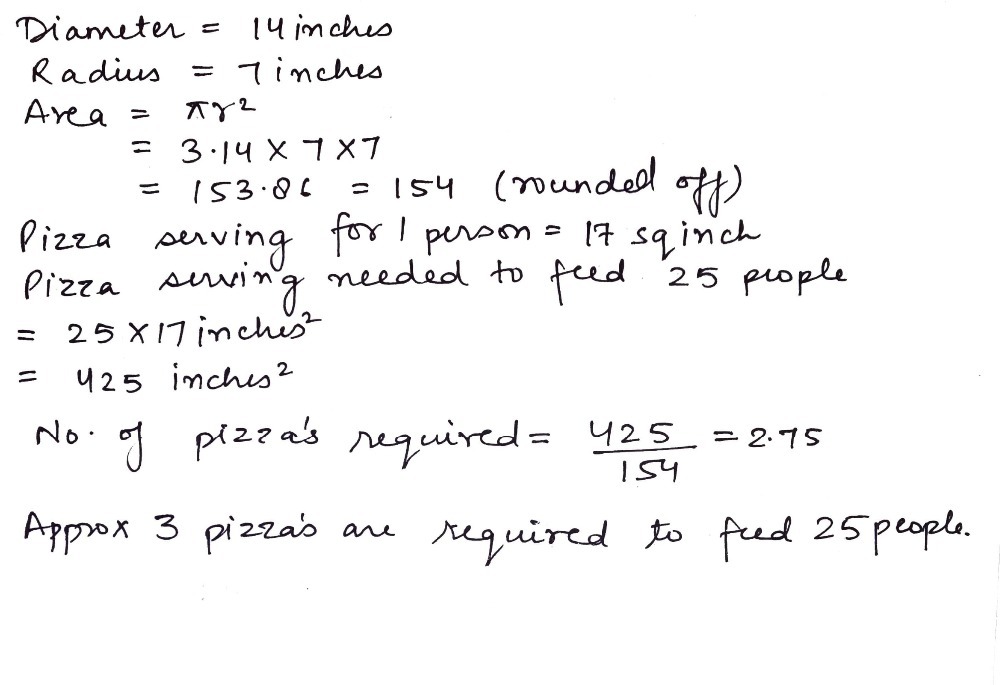 Diameter = 14 inches
Radius = 7 inches
Area = πr²
= 3.14 X 7 X 7
= 153.86 = 154 (rounded off)
Pizza serving for 1 person = 17 sq inch
Pizza serving needed to feed 25 people
= 25 X 17 inches²
= 425 inches²
No. of pizza's required = 425/154 = 2.75
Approx 3 pizza's are required to feed 25 people.